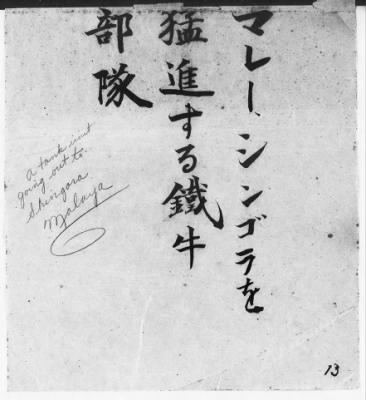 マレー、シンゴラを
猛進する鐵牛
部隊
a tank unit
going out to
Shingora
Malaya
13